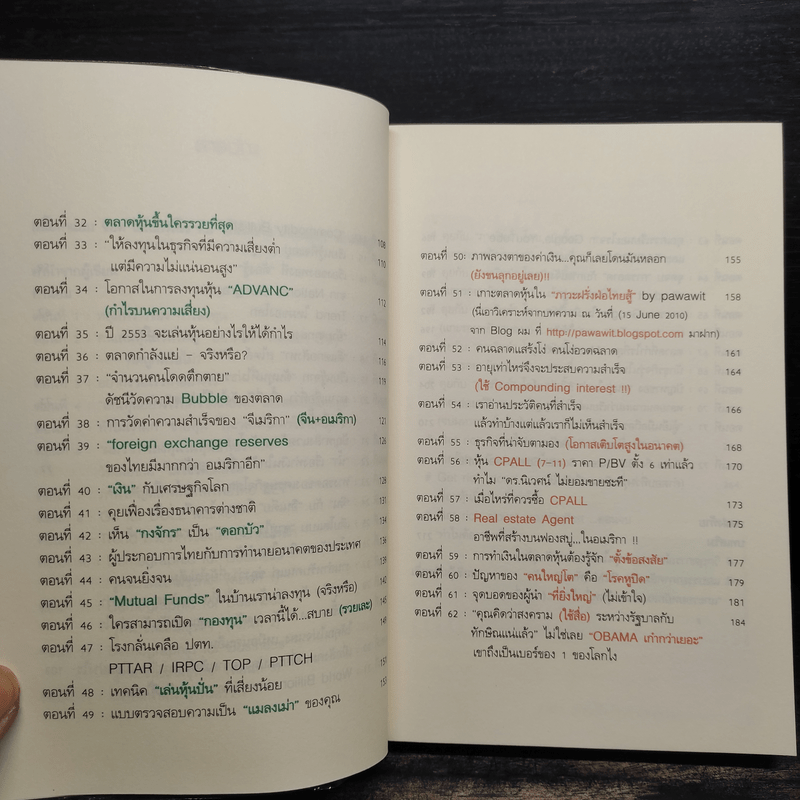 ตอนที่ 32 : ตลาดหุ้นขึ้นใครรวยที่สุด 108
ตอนที่ 33 : "ให้ลงทุนในธุรกิจที่มีความเสี่ยงต่ำ 110
แต่มีความไม่แน่นอนสูง"
ตอนที่ 34 : โอกาสในการลงทุนหุ้น "ADVANC" 112
(กำไรบนความเสี่ยง)
ตอนที่ 35 : ปี 2553 จะเล่นหุ้นอย่างไรให้ได้กำไร 114
ตอนที่ 36 : ตลาดกำลังแย่ - จริงหรือ?
ตอนที่ 37 : "จำนวนคนโดดตึกตาย"
ดัชนีวัดความ Bubble ของตลาด
ตอนที่ 38 : การวัดค่าความสำเร็จของ "จีเมริกา" (จีน+อเมริกา) 121
ตอนที่ 39 : "foreign exchange reserves
ของไทยมีมากกว่า อเมริกาอีก"
ตอนที่ 40 : "เงิน" กับเศรษฐกิจโลก
ตอนที่ 41 : คุยเฟื่องเรื่องธนาคารต่างชาติ
ตอนที่ 42 : เห็น "กงจักร" เป็น "ดอกบัว"
ตอนที่ 43 : ผู้ประกอบการไทยกับการทำนายอนาคตของประเทศ
ตอนที่ 44 : คนจนยิ่งจน
ตอนที่ 45 : "Mutual Funds" ในบ้านเราน่าลงทุน (จริงหรือ)
ตอนที่ 46 : ใครสามารถเปิด "กองทุน" เวลานี้ได้...สบาย (รวยเละ)
ตอนที่ 47 : โรงกลั่นเคลือ ปตท.
PTTAR / IRPC / TOP / PTTCH
ตอนที่ 48 : เทคนิค "เล่นหุ้นปั่น" ที่เสี่ยงน้อย
ตอนที่ 49 : แบบตรวจสอบความเป็น "แมลงเม่า" ของคุณ
ตอนที่ 50: ภาพลวงตาของค่าเงิน...คุณก็เลยโดนมันหลอก 155
(ยังขนลุกอยู่เลย)!!
ตอนที่ 51 : เกาะตลาดหุ้นใน "ภาวะฝรั่งฝ่อไทยสู้" by pawawit 158
(นี่เอาวิเคราะห์จากบทความ ณ วันที่ (15 June 2010)
จาก Blog ผม ที่ http://pawawit.blogspot.com มาฝาก)
ตอนที่ 52 : คนฉลาดแสร้งโง่ คนโง่อวดฉลาด 161
ตอนที่ 53 : อายุเท่าไหร่จึงจะประสบความสำเร็จ 164
(ใช้ Compounding interest !!)
ตอนที่ 54 : เราอ่านประวัติคนที่สำเร็จ 166
แล้วทำบ้างแต่แล้วเราก็ไม่เห็นสำเร็จ
ตอนที่ 55 : ธุรกิจที่น่าจับตามอง (โอกาสเติบโตสูงในอนาคต) 168
ตอนที่ 56 : หุ้น CPALL (7-11) ราคา P/BV ตั้ง 6 เท่าแล้ว 170
ทำไม "ดร.นิเวศน์ ไม่ยอมขายซะที"
ตอนที่ 57 : เมื่อไหร่ที่ควรซื้อ CPALL 173
ตอนที่ 58 : Real estate Agent 175
อาชีพที่สร้างบนฟองสบู่...ในอเมริกา !!
ตอนที่ 59 : การทำเงินในตลาดหุ้นต้องรู้จัก "ตั้งข้อสงสัย" 177
ตอนที่ 60 : ปัญหาของ "คนใหญ่โต" คือ "โรคหูปิด" 179
ตอนที่ 61 : จุดบอดของผู้นำ "ที่ยิ่งใหญ่" (ไม่เข้าใจ) 181
ตอนที่ 62 : "คุณคิดว่าสงคราม (ใช้สื่อ) ระหว่างรัฐบาลกับ 184
ทักษิณแน่แล้ว" ไม่ใช่เลย "OBAMA เก๋ากว่าเยอะ"
เขาถึงเป็นเบอร์ของ 1 ของโลกไง